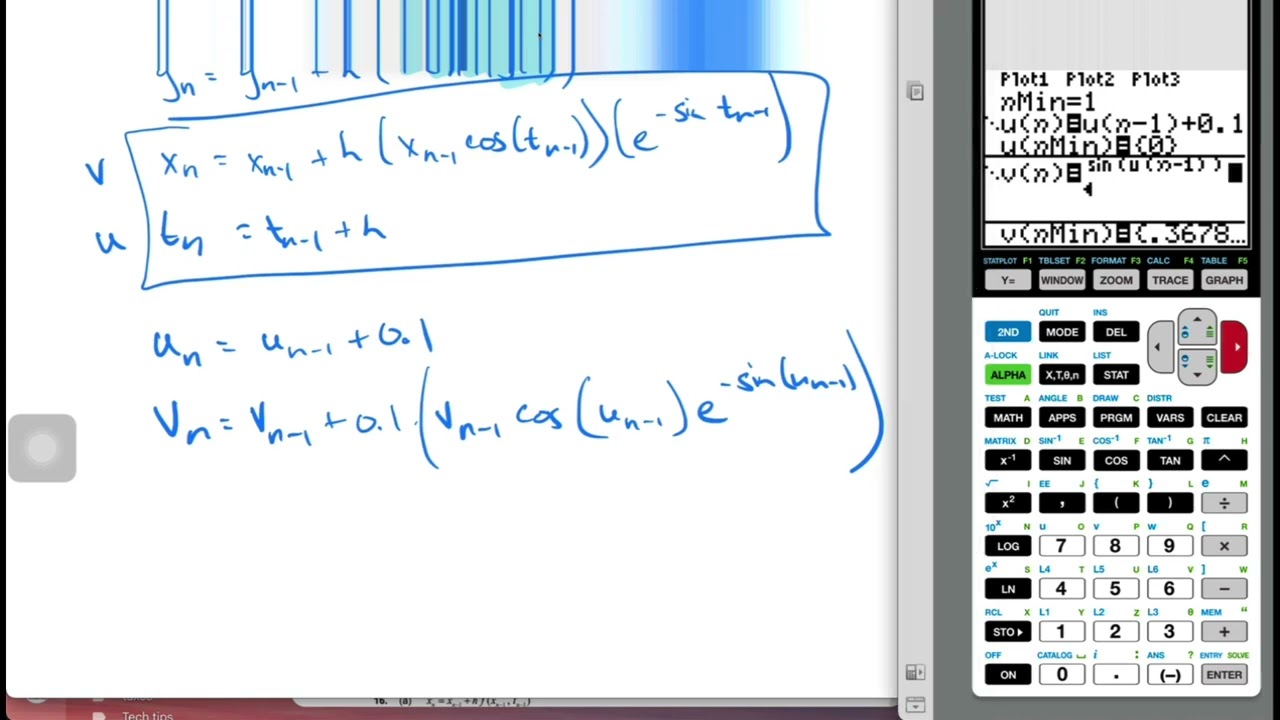 yn = yn-1 + h (
v xn = xn-1 + h (xn-1 cos(tn-1))(e^-sin tn-1)
u tn = tn-1 + h
un = un-1 + 0.1
vn = vn-1 + 0.1 · (vn-1 cos (un-1) e^-sin(un-1))
Plot1 Plot2 Plot3
nMin=1
u(n)=u(n-1)+0.1
u(nMin)={0}
v(n)= sin(u(n-1))
v(nMin)={.3678…
STATPLOT F1 TBLSET F2 FORMAT F3 CALC F4 TABLE F5
Y= WINDOW ZOOM TRACE GRAPH
QUIT INS
2ND MODE DEL
A-LOCK LINK LIST
ALPHA X,T,θ,n STAT
TEST A ANGLE B DRAW C DISTR
MATH APPS PRGM VARS CLEAR
MATRIX D SIN-1 E COS-1 F TAN-1 G π H
x-1 SIN COS TAN ^
√ I EE J { K } L e M
x2 , ( ) ÷
10x N u O v P w Q [ R
LOG 7 8 9 ×
ex S L4 T L5 U L6 V ] W
LN 4 5 6 −
RCL X L1 Y L2 Z L3 θ MEM “
STO▸ 1 2 3 +
OFF CATALOG i : ANS ? ENTRY SOLVE
ON 0 . (−) ENTER
16. (a)
Tech tips